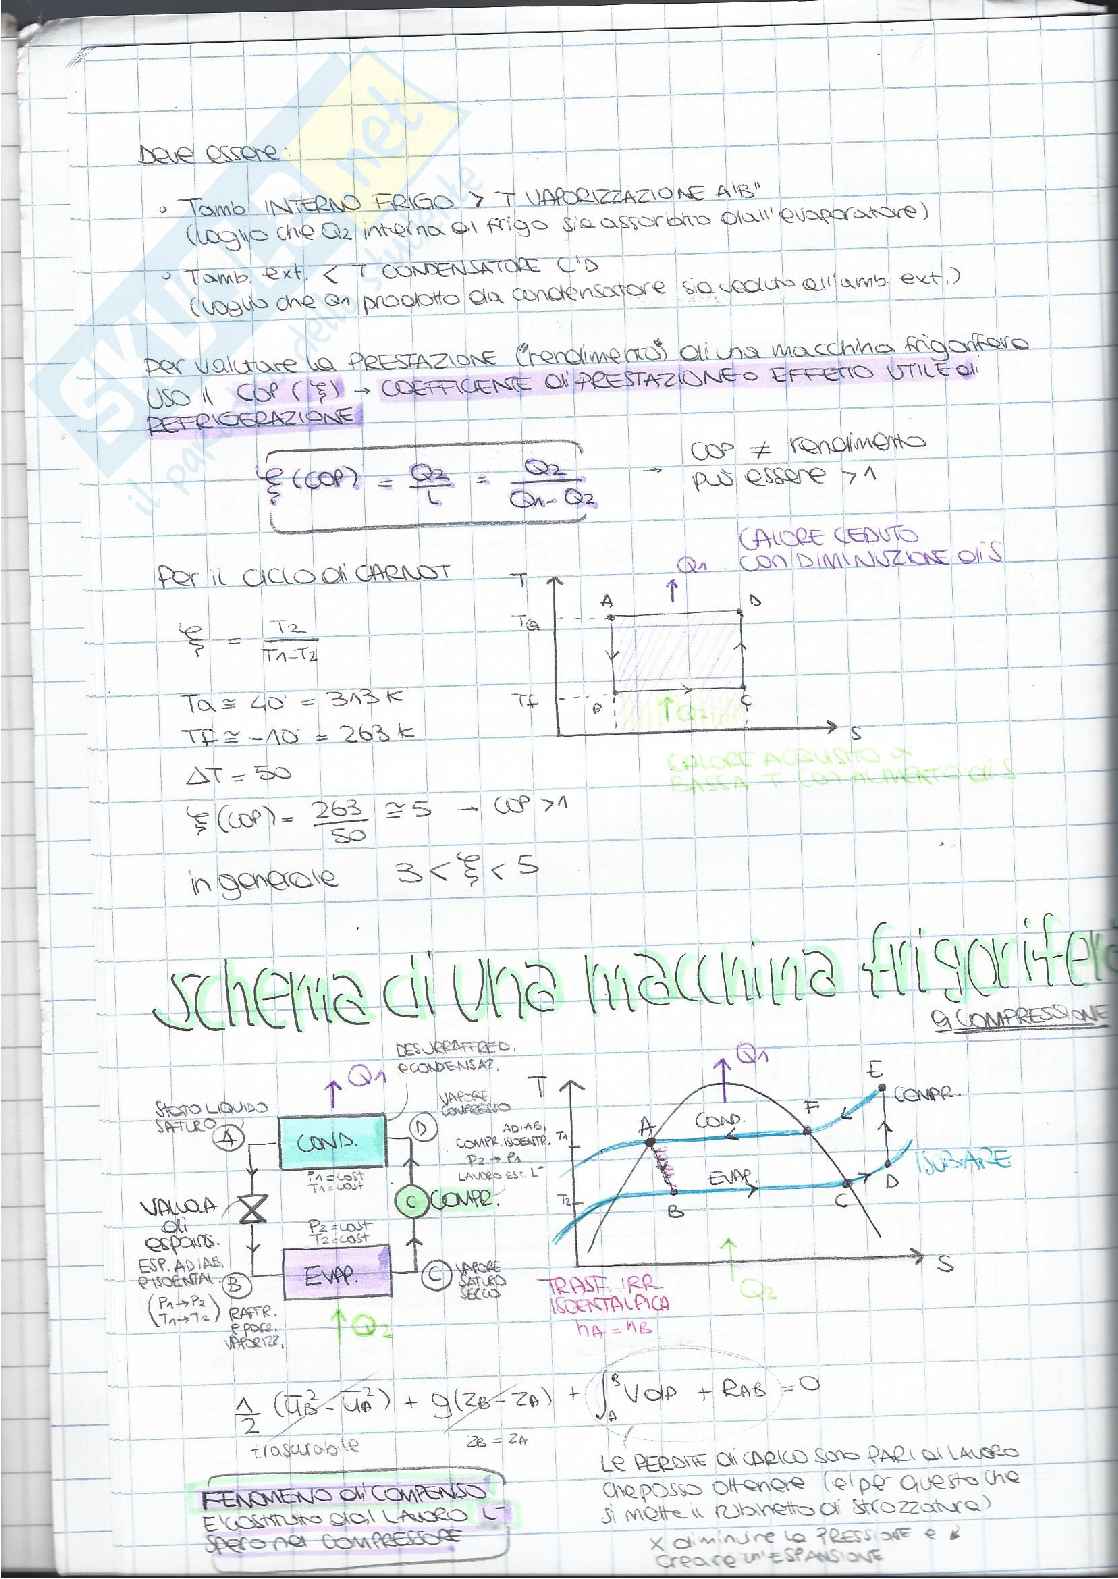 Deve essere:
• Tamb. INTERNO FRIGO > T VAPORIZZAZIONE A'B"
(voglio che Q2 interna al frigo sia assorbito dall'evaporatore)
• Tamb. ext. < T CONDENSATORE C'D
(voglio che Q1 prodotto da condensatore sia ceduto all'amb. ext.)
per valutare la PRESTAZIONE ("rendimento") di una macchina frigorifera
uso il COP (ξ) → COEFFICENTE di PRESTAZIONE o EFFETTO UTILE di
REFRIGERAZIONE
ξ (COP) = Q2/L = Q2/(Q1-Q2) → COP ≠ rendimento
può essere >1
Per il ciclo di CARNOT
ξ = T2/(T1-T2)
Ta ≅ 40° = 313 K
Tf ≅ -10° = 263 K
ΔT = 50
ξ (COP) = 263/50 ≅ 5 → COP >1
in generale 3 < ξ < 5
CALORE CEDUTO
CON DIMINUZIONE di S
Q1
T
A
D
Ta
Tf
B
C
Q2
S
CALORE ACQUISITO a
BASSA T CON AUMENTO di S
Schema di una macchina frigorifera
a COMPRESSIONE
DESURRAFFRED.
e CONDENSAZ.
Q1
STATO LIQUIDO
SATURO
A
COND.
P1=cost
T1=cost
D
VAPORE
COMPRESSO
ADIAB.
COMPR. ISOENTR.
P2 → P1
LAVORO EST. L-
VALVOLA
di
espans.
C
COMPR.
ESP. ADIAB.
e ISOENTAL.
(P1→P2
T1→T2)
P2=cost
T2=cost
EVAP.
B
RAFFR.
e parz.
VAPORIZZ.
C
VAPORE
SATURO
SECCO
Q2
T
Q1
E
COMPR.
F
A
COND.
T1
ISOBARE
EVAP.
D
T2
B
C
S
Q2
TRASF. IRR
ISOENTALPICA
hA = hB
1/2 (ūB² - ūA²) + g(zB - zA) + ∫_A^B Vdp + RAB = 0
trascurabile
zB = zA
FENOMENO di COMPENSO
E' COSTITUITO dal LAVORO L-
SPESO nel COMPRESSORE
Le PERDITE di CARICO SONO PARI al LAVORO
che posso ottenere (e' per questo che
si mette il rubinetto di strozzatura)
x diminuire la PRESSIONE e
creare un'ESPANSIONE
SKUOLA.net
il paradiso dello studente